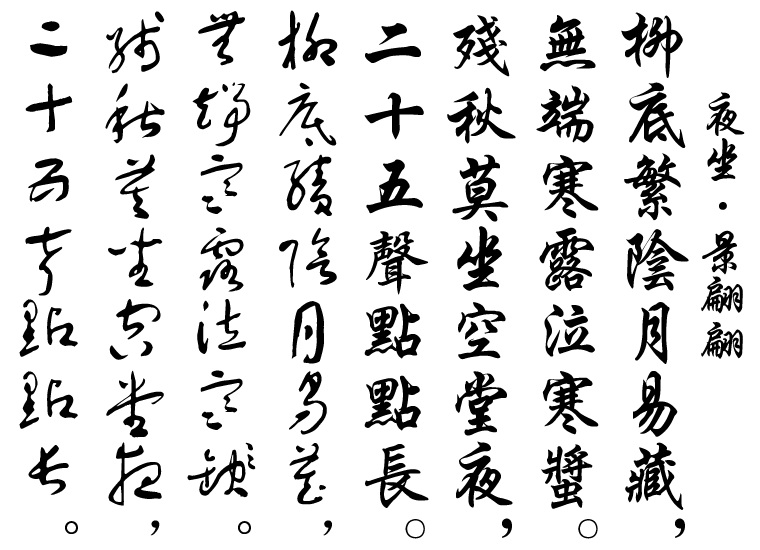 夜坐·景翩翩
柳底繁陰月易藏，
無端寒露泣寒螿。
殘秋莫坐空堂夜，
二十五聲點點長。
柳底繁陰月易藏，
無端寒露泣寒螿。
殘秋莫坐空堂夜，
二十五聲點點長。